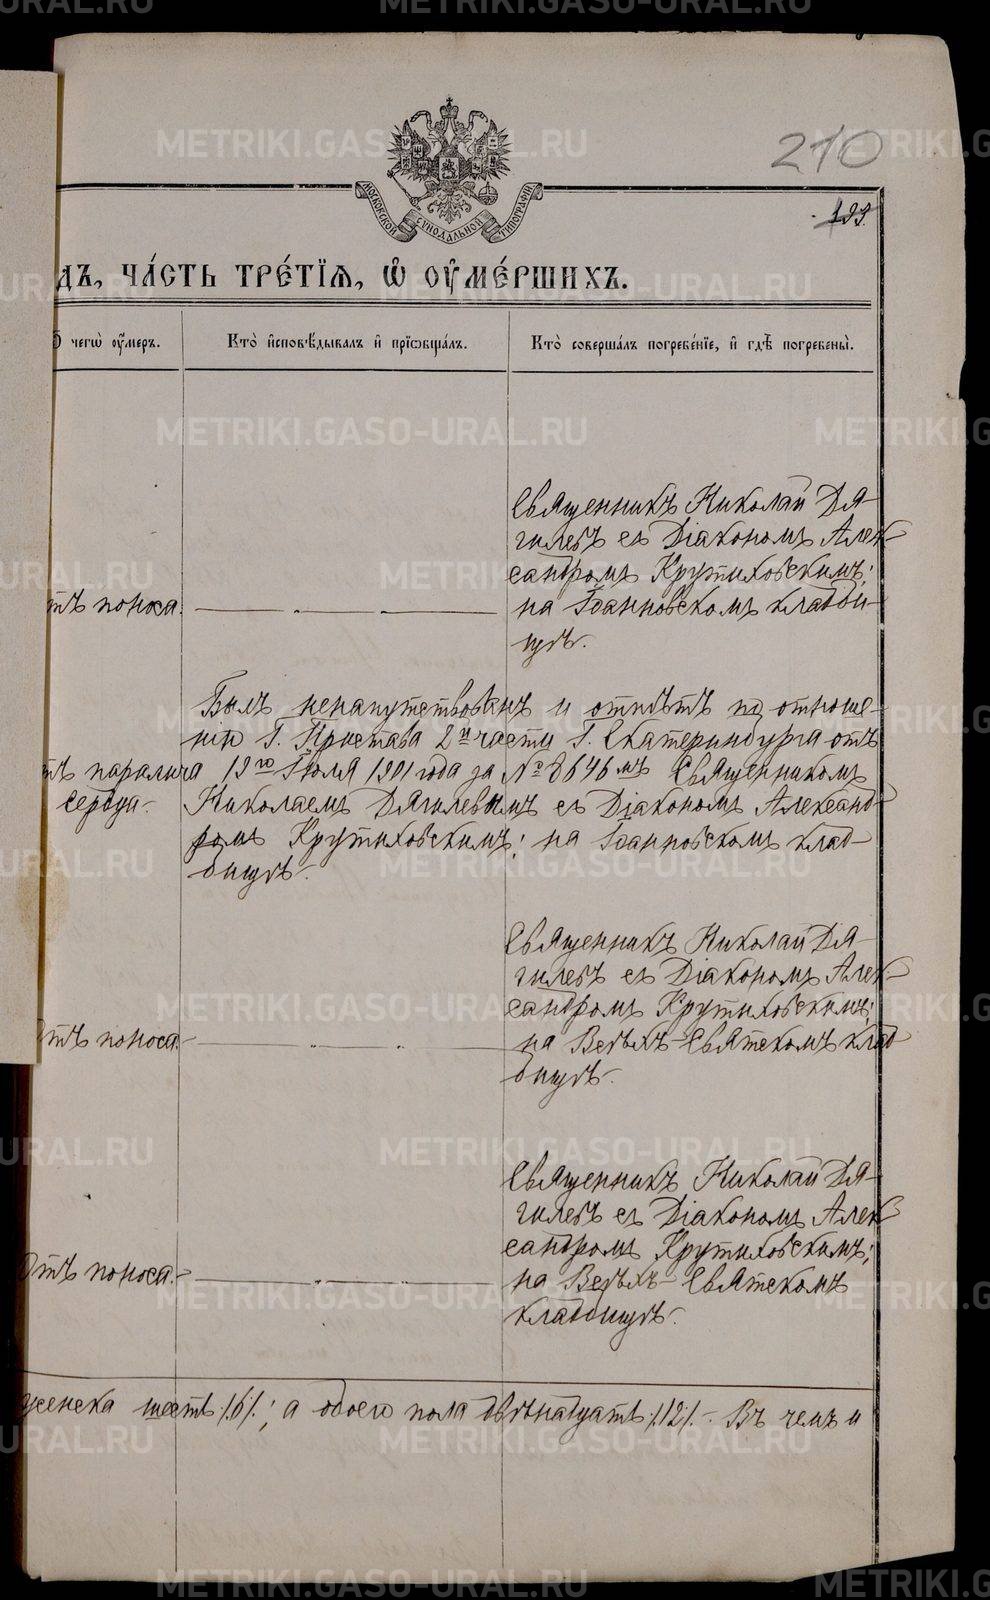 210
199.
МОСКОВСКОЙ СѴНОДАЛЬНОЙ ТИПОГРАФІИ
дъ, ча́сть тре́тїѧ, ѡ҆ ᲂу҆ме́ршихъ.
Ѿ чегѡ̀ ᲂу҆́меръ.
Кто̀ и҆сповѣ́дывалъ и҆ прїѡбща́лъ.
Кто̀ соверша́лъ погребе́нїе, и҆ гдѣ̀ погребены̀.
Священникъ Николай Дя-
гилевъ съ Діакономъ Алек-
сандромъ Крутиховскимъ;
тъ поноса.
на Іоанновскомъ кладби-
щѣ.
Былъ ненапутствованъ и отпѣтъ по отноше-
нію Г. Пристава 2й части Г. Екатеринбурга отъ
тъ паралича
19го Іюля 1901 года за № 8646мъ Священникомъ
сердца.
Николаемъ Дягилевымъ съ Діакономъ Александ-
ромъ Крутиховскимъ; на Іоанновскомъ клад-
бищѣ.
Священникъ Николай Дя-
гилевъ съ Діакономъ Алек-
сандромъ Крутиховскимъ;
отъ поноса.
на Верхъ-Святскомъ клад
бищѣ.
Священникъ Николай Дя-
гилевъ съ Діакономъ Алек
сандромъ Крутиховскимъ;
Отъ поноса.
на Верхъ-Святскомъ
кладбищѣ.
женска шесть ./6/.; а обоего пола двѣнадцать ./12/. Въ чемъ и
METRIKI.GASO-URAL.RU